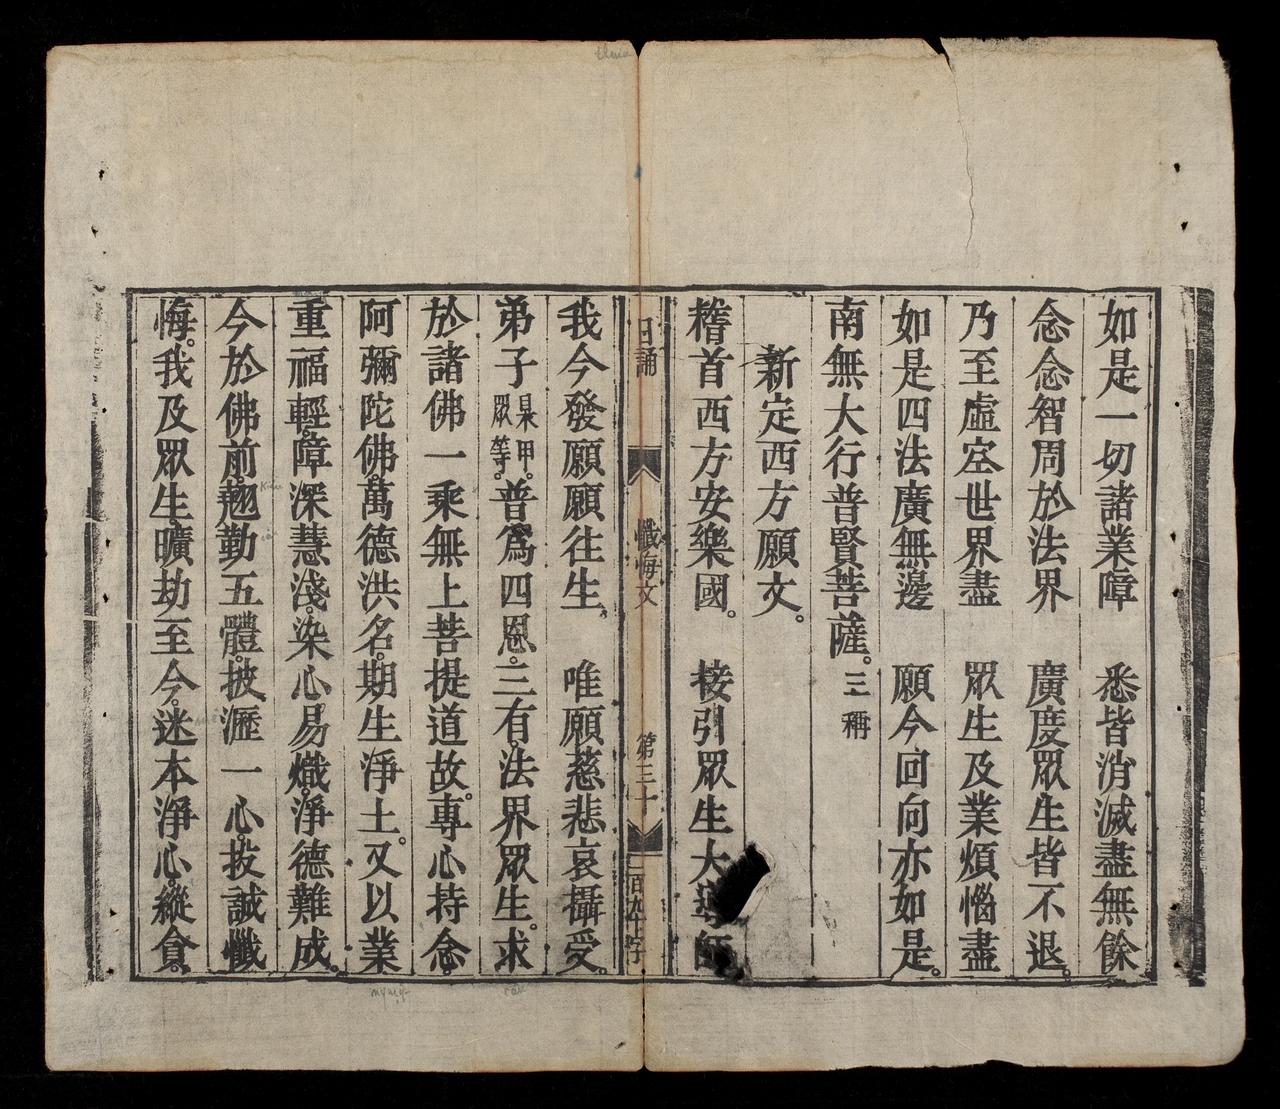 如是一切諸業障　悉皆消滅盡無餘
念念智周於法界　廣度眾生皆不退
乃至虛空世界盡　眾生及業煩惱盡
如是四法廣無邊　願今回向亦如是。
南無大行普賢菩薩。三稱
新定西方願文。
稽首西方安樂國。　接引眾生大導師
日誦　懺悔文　第三十　二百九十字
我今發願願往生。　唯願慈悲哀攝受。
弟子某甲眾等。普為四恩。三有。法界眾生。求
於諸佛一乘無上菩提道故。專心持念
阿彌陀佛。萬德洪名。期生淨土。又以業
重福輕。障深慧淺。染心易熾。淨德難成。
今於佛前。翹勤五體。披瀝一心。投誠懺
悔。我及眾生。曠劫至今。迷本淨心。縱貪。